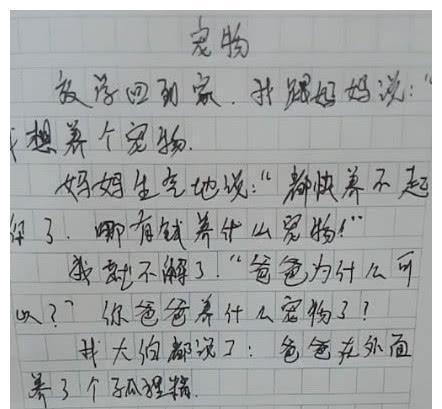 宠物
放学回到家.我跟妈妈说:"
我想养个宠物.
妈妈生气地说:"都快养不起
你了.哪有钱养什么宠物!"
我就不解了."爸爸为什么可
以?"你爸爸养什么宠物了?
我大伯都说了:爸爸在外面
养了个狐狸精.